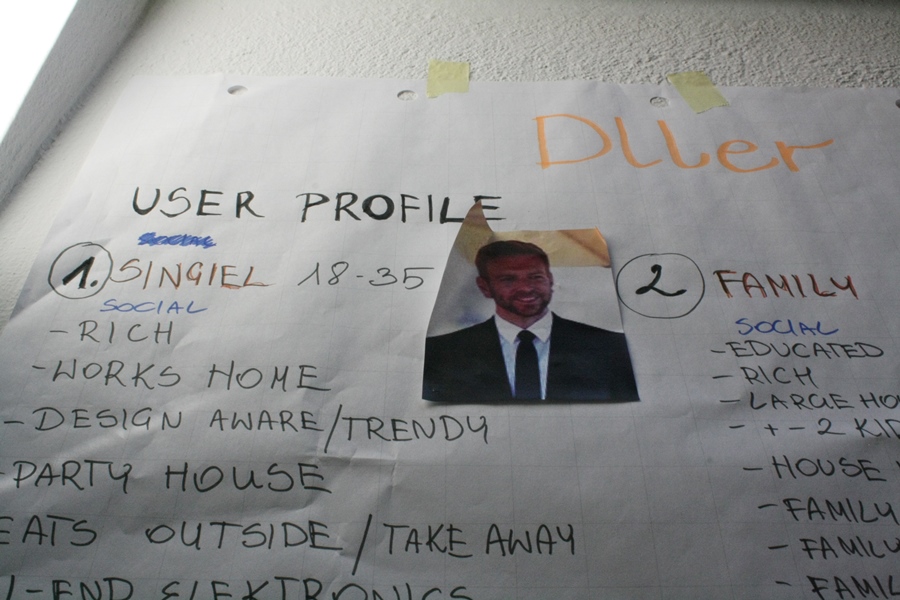 DLLer
USER PROFILE
1. SINGIEL 18-35
SOCIAL
- RICH
- WORKS HOME
- DESIGN AWARE/TRENDY
- PARTY HOUSE
EATS OUTSIDE / TAKE AWAY
-END ELEKTRONICS
2 FAMILY
SOCIAL
- EDUCATED
- RICH
- LARGE
- + - 2
- HOUSE
- FAMILY
- FAMILY
-